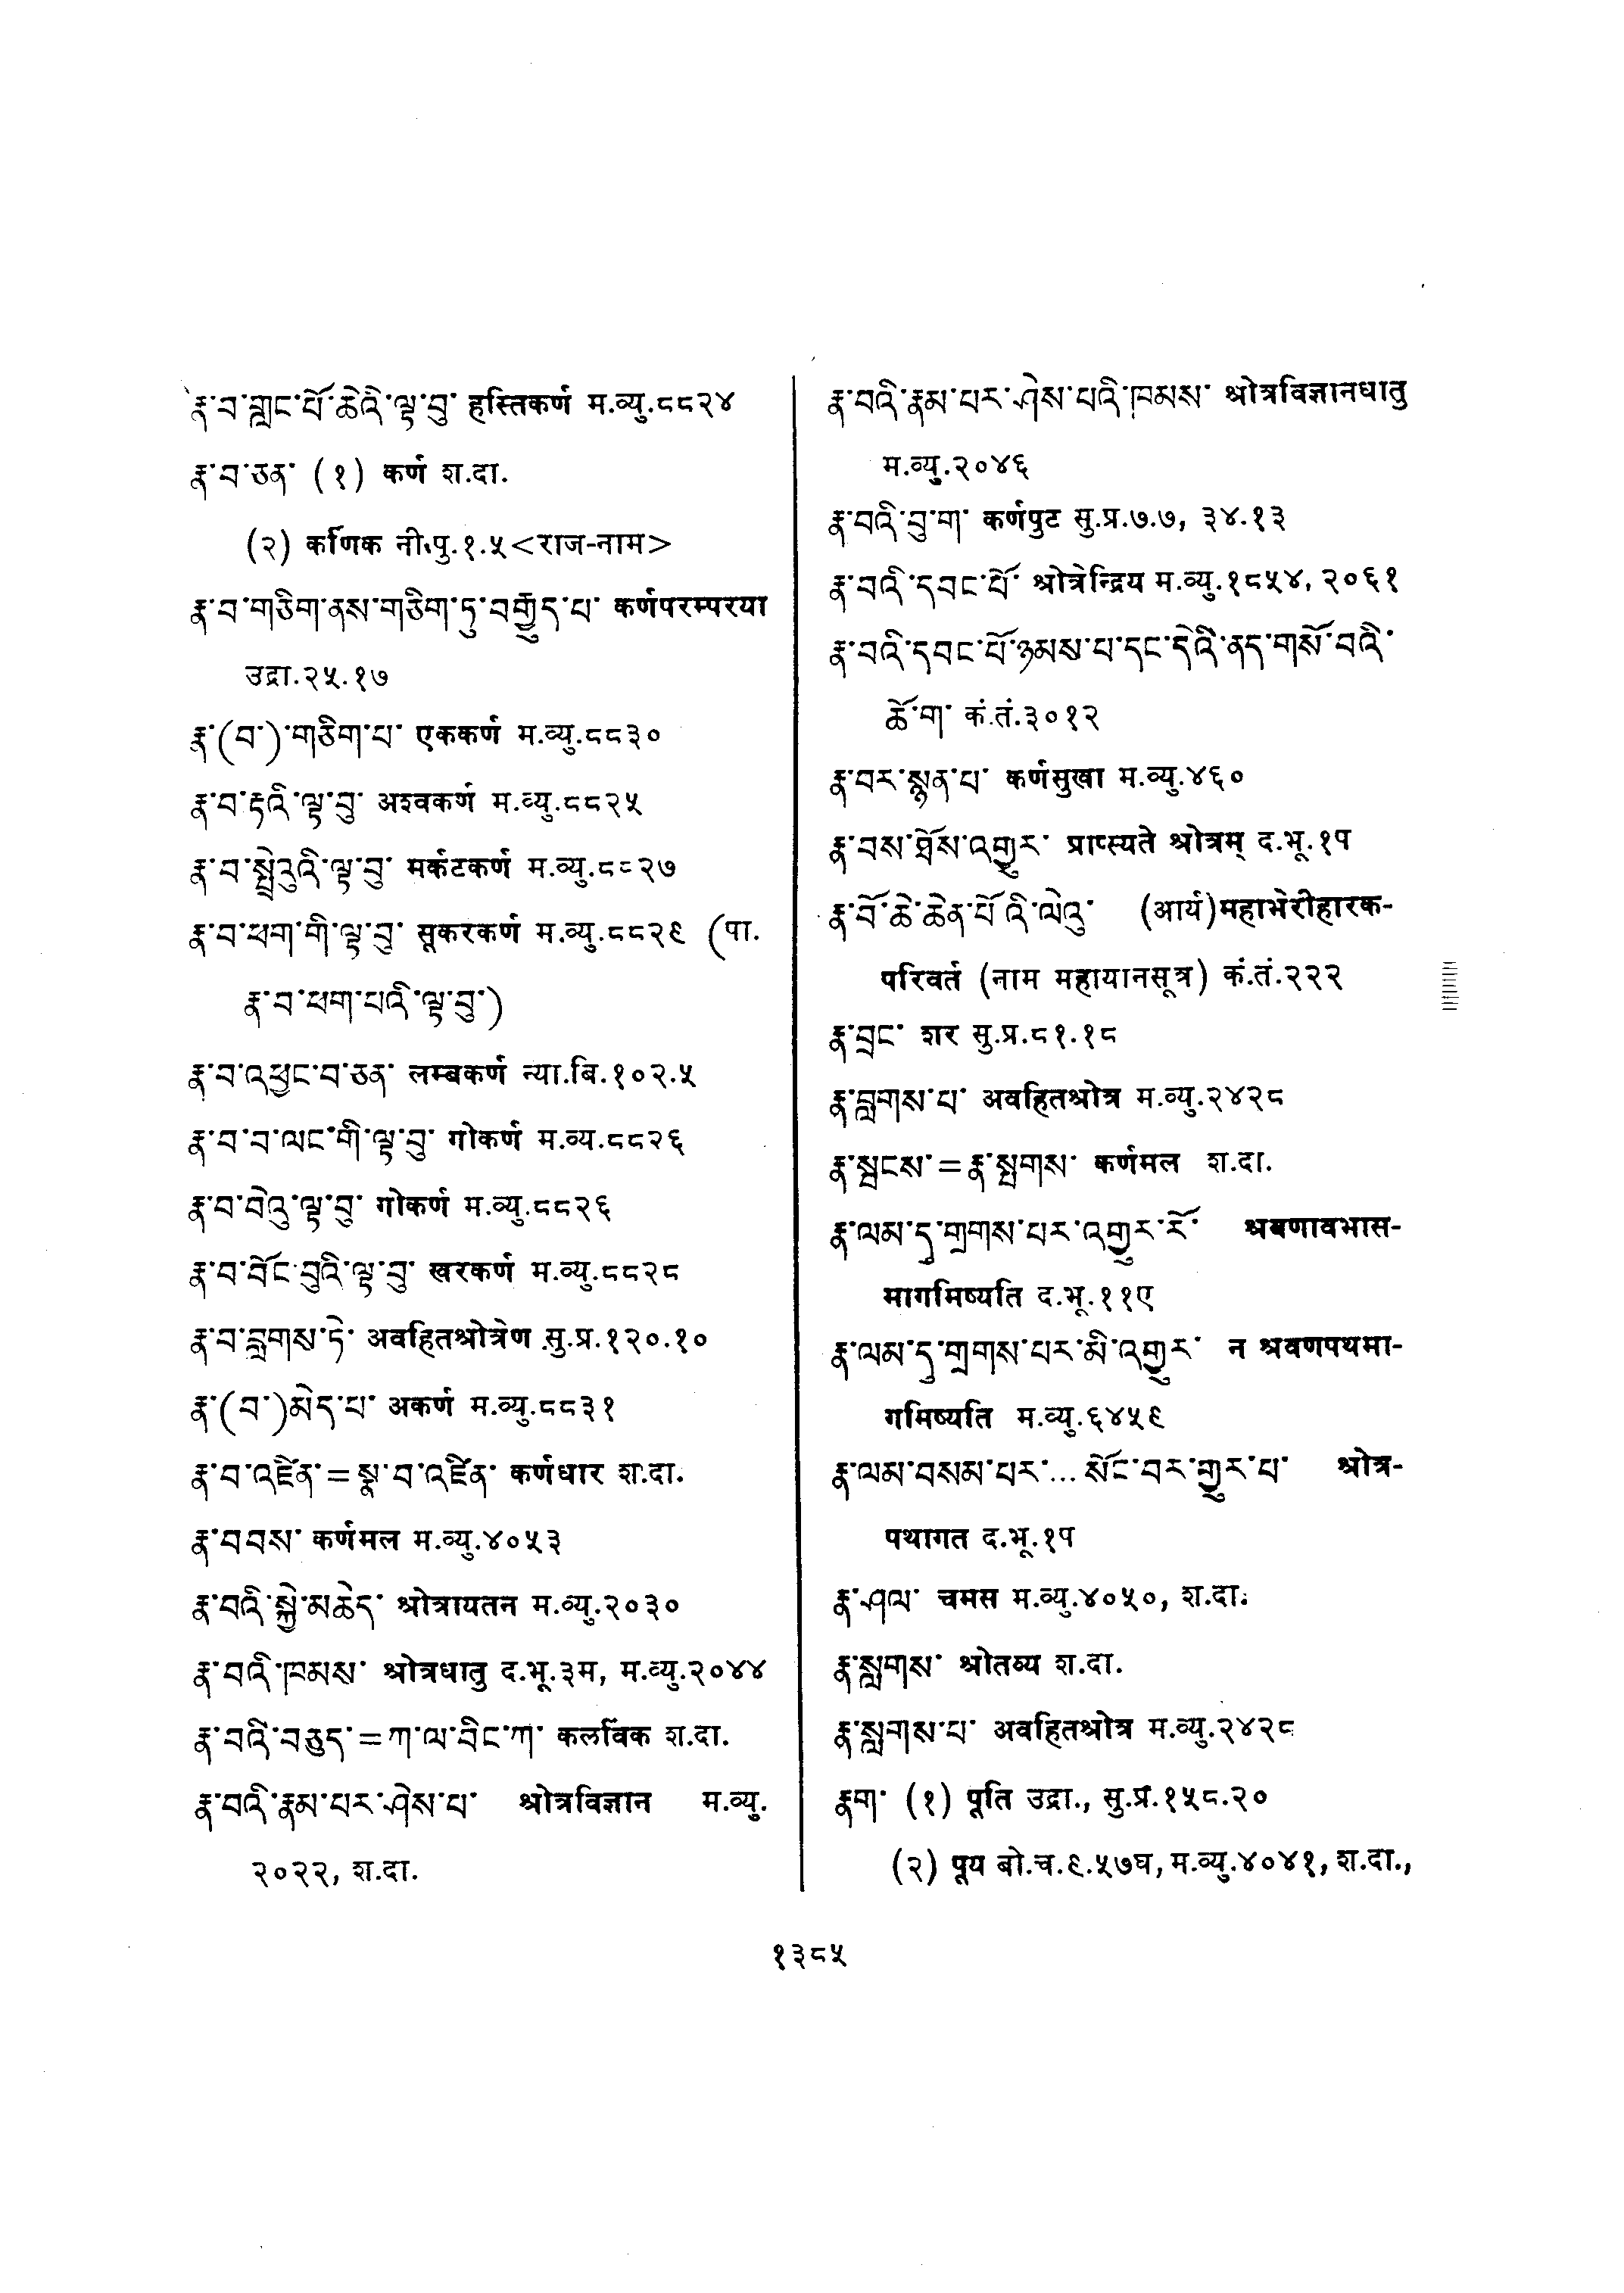 རྣ་བ་གླང་པོ་ཆེའི་ལྟ་བུ་ हस्तिकर्ण म.व्यु.८८२४
རྣ་བ་ཅན་ (१) कर्ण श.दा.
(२) कर्णिक नी.पु.१.५<राज-नाम>
རྣ་བ་གཅིག་ནས་གཅིག་ཏུ་བརྒྱུད་པ་ कर्णपरम्परया
उद्रा.२५.१७
རྣ་(བ་)་གཅིག་པ་ एककर्ण म.व्यु.८८३०
རྣ་བ་རྟའི་ལྟ་བུ་ अश्वकर्ण म.व्यु.८८२५
རྣ་བ་སྤྲེའུའི་ལྟ་བུ་ मर्कटकर्ण म.व्यु.८८२७
རྣ་བ་ཕག་གི་ལྟ་བུ་ सूकरकर्ण म.व्यु.८८२९ (पा.
རྣ་བ་ཕག་པའི་ལྟ་བུ་)
རྣ་བ་འཕྱང་བ་ཅན་ लम्बकर्ण न्या.बि.१०२.५
རྣ་བ་བ་ལང་གི་ལྟ་བུ་ गोकर्ण म.व्य.८८२६
རྣ་བ་བེའུ་ལྟ་བུ་ गोकर्ण म.व्यु.८८२६
རྣ་བ་བོང་བུའི་ལྟ་བུ་ खरकर्ण म.व्यु.८८२८
རྣ་བ་བླགས་ཏེ་ अवहितश्रोत्रेण सु.प्र.१२०.१०
རྣ་(བ་)མེད་པ་ अकर्ण म.व्यु.८८३१
རྣ་བ་འཛིན་=སྣ་བ་འཛིན་ कर्णधार श.दा.
རྣ་བབས་ कर्णमल म.व्यु.४०५३
རྣ་བའི་སྐྱེ་མཆེད་ श्रोत्रायतन म.व्यु.२०३०
རྣ་བའི་ཁམས་ श्रोत्रधातु द.भू.३म, म.व्यु.२०४४
རྣ་བའི་བཅུད་=ཀ་ལ་བིང་ཀ་ कलविंक श.दा.
རྣ་བའི་རྣམ་པར་ཤེས་པ་ श्रोत्रविज्ञान म.व्यु.
२०२२, श.दा.
རྣ་བའི་རྣམ་པར་ཤེས་པའི་ཁམས་ श्रोत्रविज्ञानधातु
म.व्यु.२०४६
རྣ་བའི་བུ་ག་ कर्णपुट सु.प्र.७.७, ३४.१३
རྣ་བའི་དབང་པོ་ श्रोत्रेन्द्रिय म.व्यु.१८५४, २०६१
རྣ་བའི་དབང་པོ་ཉམས་པ་དང་དེའི་ནད་གསོ་བའི་
ཆོ་ག་ कं.तं.३०१२
རྣ་བར་སྙན་པ་ कर्णसुखा म.व्यु.४६०
རྣ་བས་ཐོས་འགྱུར་ प्राप्स्यते श्रोत्रम् द.भू.१प
རྣ་བོ་ཆེ་ཆེན་པོ་འི་ལེའུ་ (आर्य)महाभेरीहारक-
परिवर्त (नाम महायानसूत्र) कं.तं.२२२
རྣ་བྲང་ शर सु.प्र.८१.१८
རྣ་བླགས་པ་ अवहितश्रोत्र म.व्यु.२४२८
རྣ་སྦངས་=རྣ་སྤགས་ कर्णमल श.दा.
རྣ་ལམ་དུ་གྲགས་པར་འགྱུར་རོ་ श्रवणावभास-
मागमिष्यति द.भू.११ए
རྣ་ལམ་དུ་གྲགས་པར་མི་འགྱུར་ न श्रवणपथमा-
गमिष्यति म.व्यु.६४५९
རྣ་ལམ་བསམ་པར་... སོང་བར་གྱུར་པ་ श्रोत्र-
पथागत द.भू.१प
རྣ་ཤལ་ चमस म.व्यु.४०५०, श.दा.
རྣ་སླགས་ श्रोतव्य श.दा.
རྣ་སླགས་པ་ अवहितश्रोत्र म.व्यु.२४२८
རྣག་ (१) पूति उद्रा., सु.प्र.१५८.२०
(२) पूय बो.च.९.५७घ, म.व्यु.४०४१, श.दा.,
१३८५